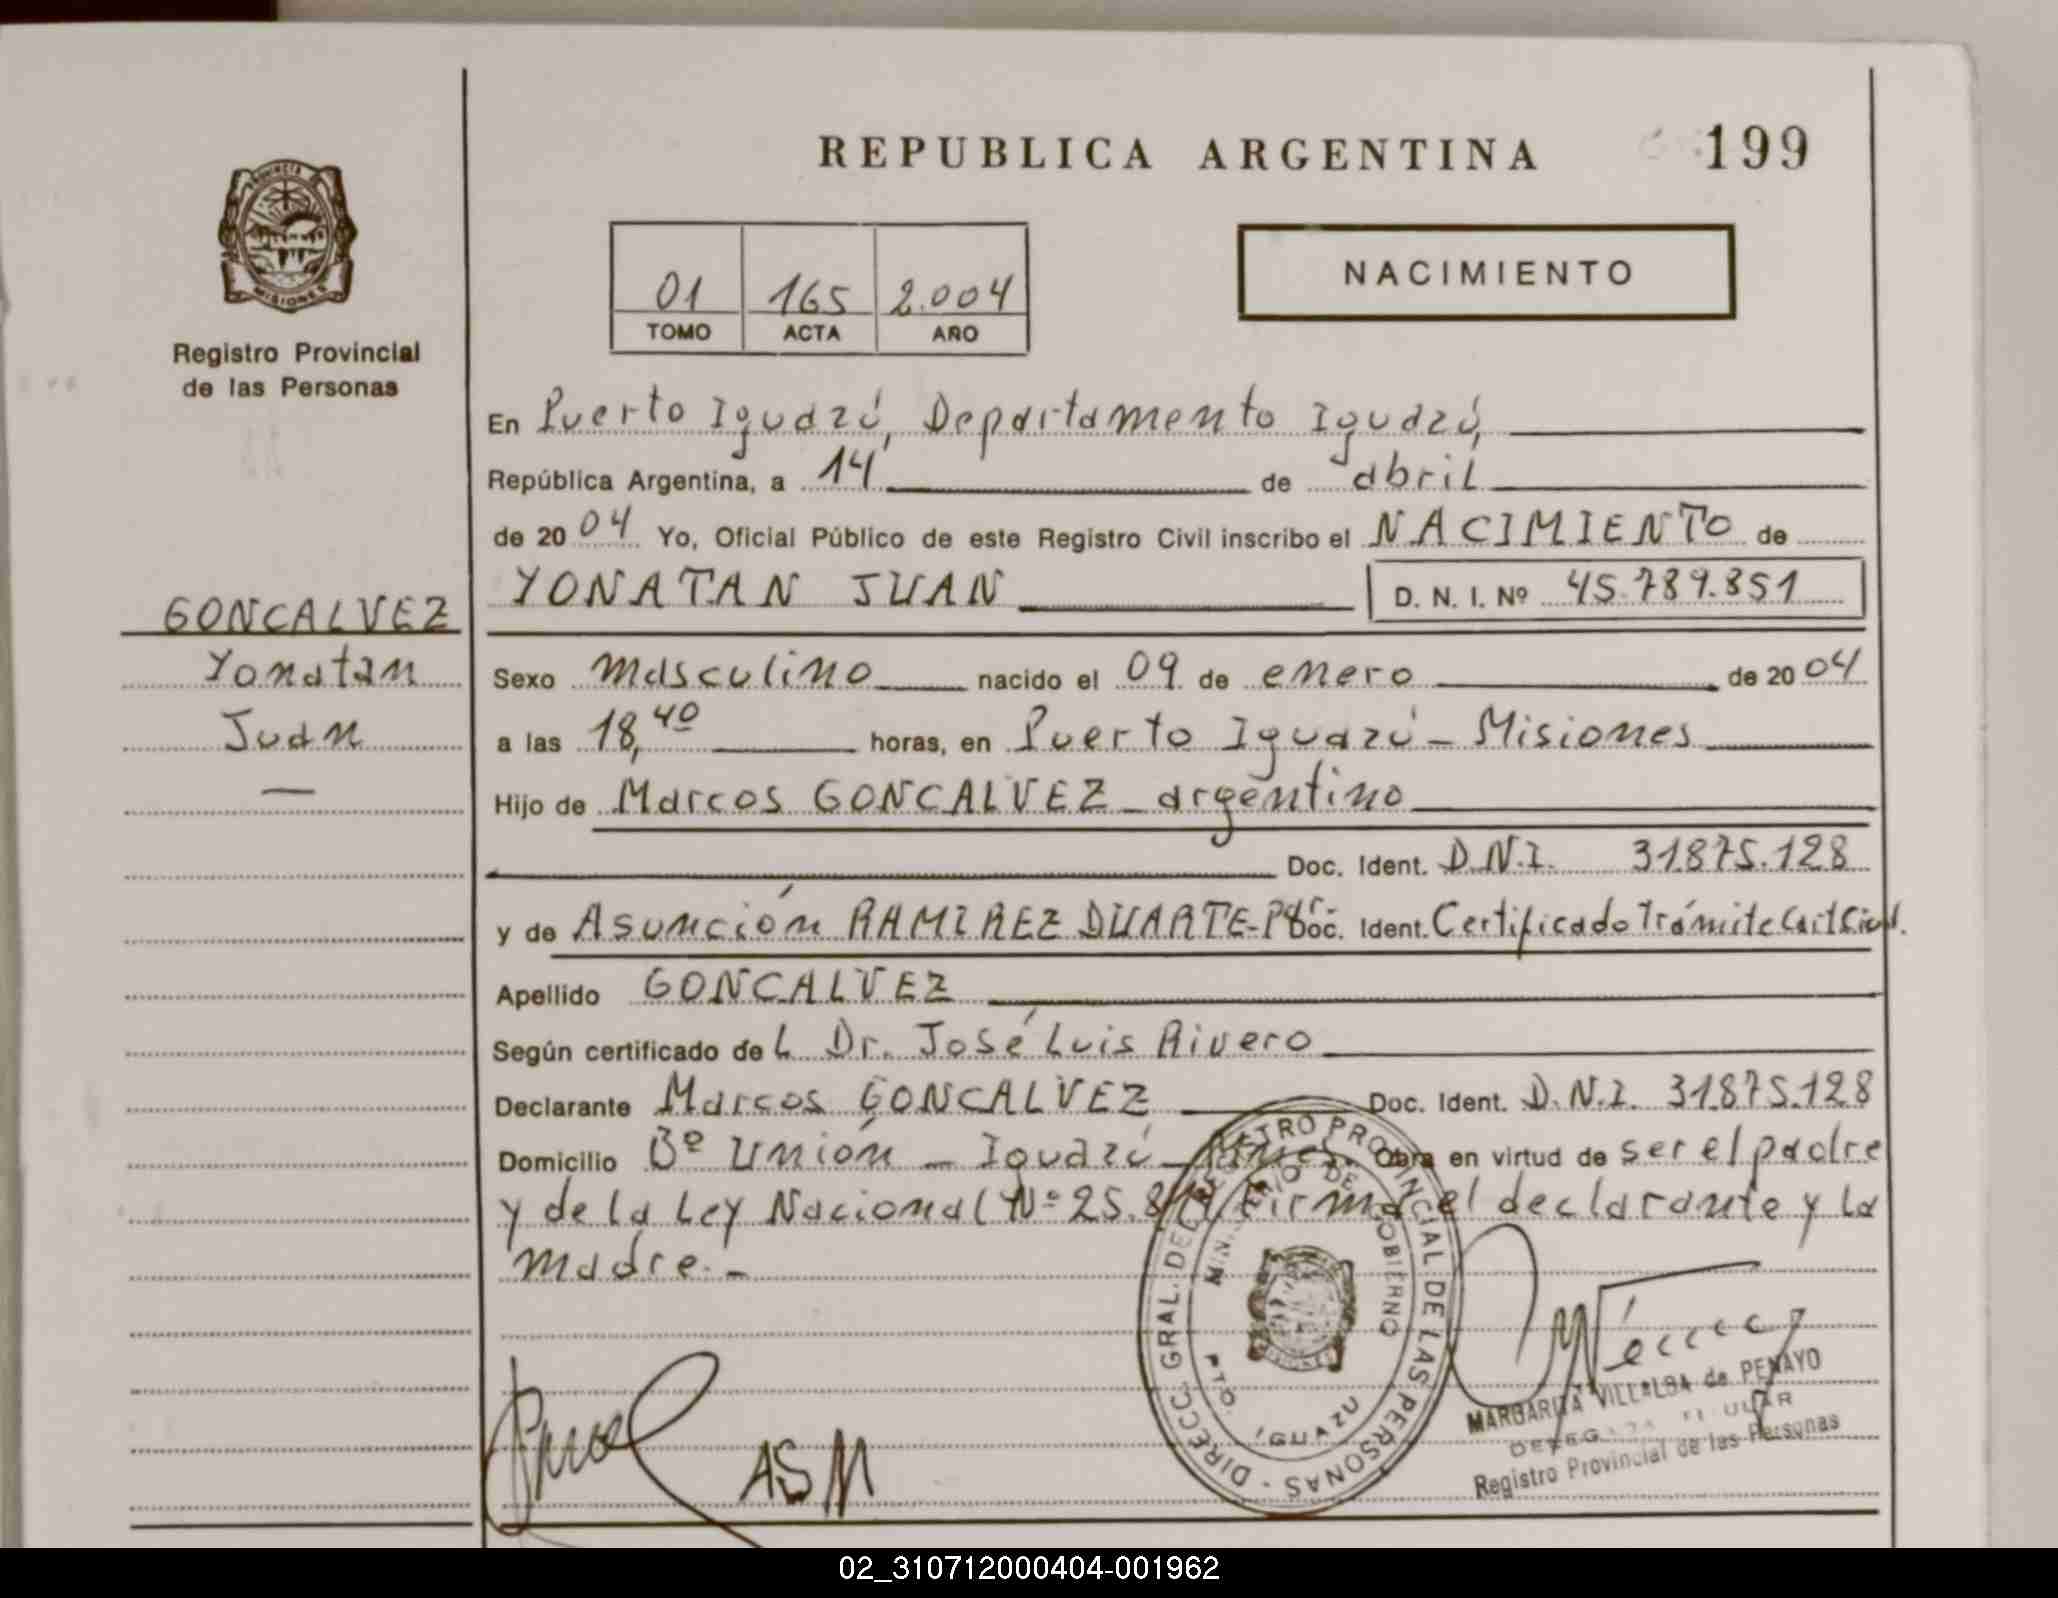 REPUBLICA ARGENTINA
199
PROVINCIA DE
MISIONES
Registro Provincial
de las Personas
01 165 2.004
TOMO ACTA AÑO
NACIMIENTO
En Puerto Iguazú, Departamento Iguazú,
República Argentina, a 14 de abril
de 2004 Yo, Oficial Público de este Registro Civil inscribo el NACIMIENTO de
YONATAN JUAN D. N. I. Nº 45.789.851
GONCALVEZ
Yonatan
Juan
—
Sexo masculino nacido el 09 de enero de 2004
a las 18,40 horas, en Puerto Iguazú - Misiones
Hijo de Marcos GONCALVEZ - argentino
Doc. Ident. D.N.I. 31.875.128
y de Asunción RAMIREZ DUARTE - Doc. Ident. Certificado Trámite
Apellido GONCALVEZ
Según certificado del Dr. José Luis Rivero
Declarante Marcos GONCALVEZ Doc. Ident. D.N.I. 31.875.128
Domicilio Bº Unión - Iguazú - Obra en virtud de ser el padre
y de la Ley Nacional Nº Firma el declarante y la
madre.-
DIRECC. GRAL. DEL REGISTRO PROVINCIAL DE LAS PERSONAS -
MINISTERIO DE GOBIERNO
PTO. IGUAZU
ASM
MARGARITA VILLALBA de PENAYO
TITULAR
Registro Provincial de las Personas
02_310712000404-001962